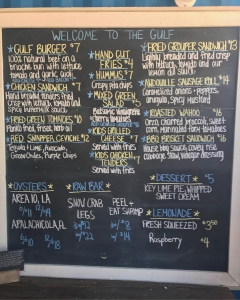 WELCOME TO THE GULF
GULF BURGER $7
100% natural beef on a
brioche bun with lettuce,
tomato and garlic aioli
CHICKEN SANDWICH $7
Hand breaded tenders fried
crisp with lettuce, tomato and
spicy buttermilk sauce
FRIED GREEN TOMATOES $10
Panko fried, herb
RED SNAPPER CEVICHE $12
Tequila & Lime, Avocado,
Green Chiles, Purple Chips
HAND CUT
FRIES $4
HUMMUS $7
Crispy Pita chips
MIXED GREEN
SALAD
Balsamic Vinaigrette
KIDS GRILLED
CHEESE
Served with fries
KIDS CHICKEN
TENDERS
Served with fries
FRIED GROUPER SANDWICH $13
Lightly breaded and fried crisp
with lettuce, tomato and our
lemon dill sauce
ANDOUILLE SAUSAGE ROLL $14
Caramelized onions & peppers,
arugula, Spicy mustard
ROASTED WAHOO $16
Orzo, charred broccoli, sweet
corn, Marinated Tomatoes
BBQ BRISKET SANDWICH $16
House BBQ sauce, Coveys rise
cabbage slaw, Vinegar dressing
OYSTERS
AREA 10, LA
6/$11 12/$19
APALACHICOLA, FL
6/$10 12/$18
RAW BAR
SNOW CRAB
LEGS
PEEL +
EAT SHRIMP
DESSERT $5
KEY LIME PIE, WHIPPED
SWEET CREAM
LEMONADE
FRESH SQUEEZED $3.50
Raspberry $4